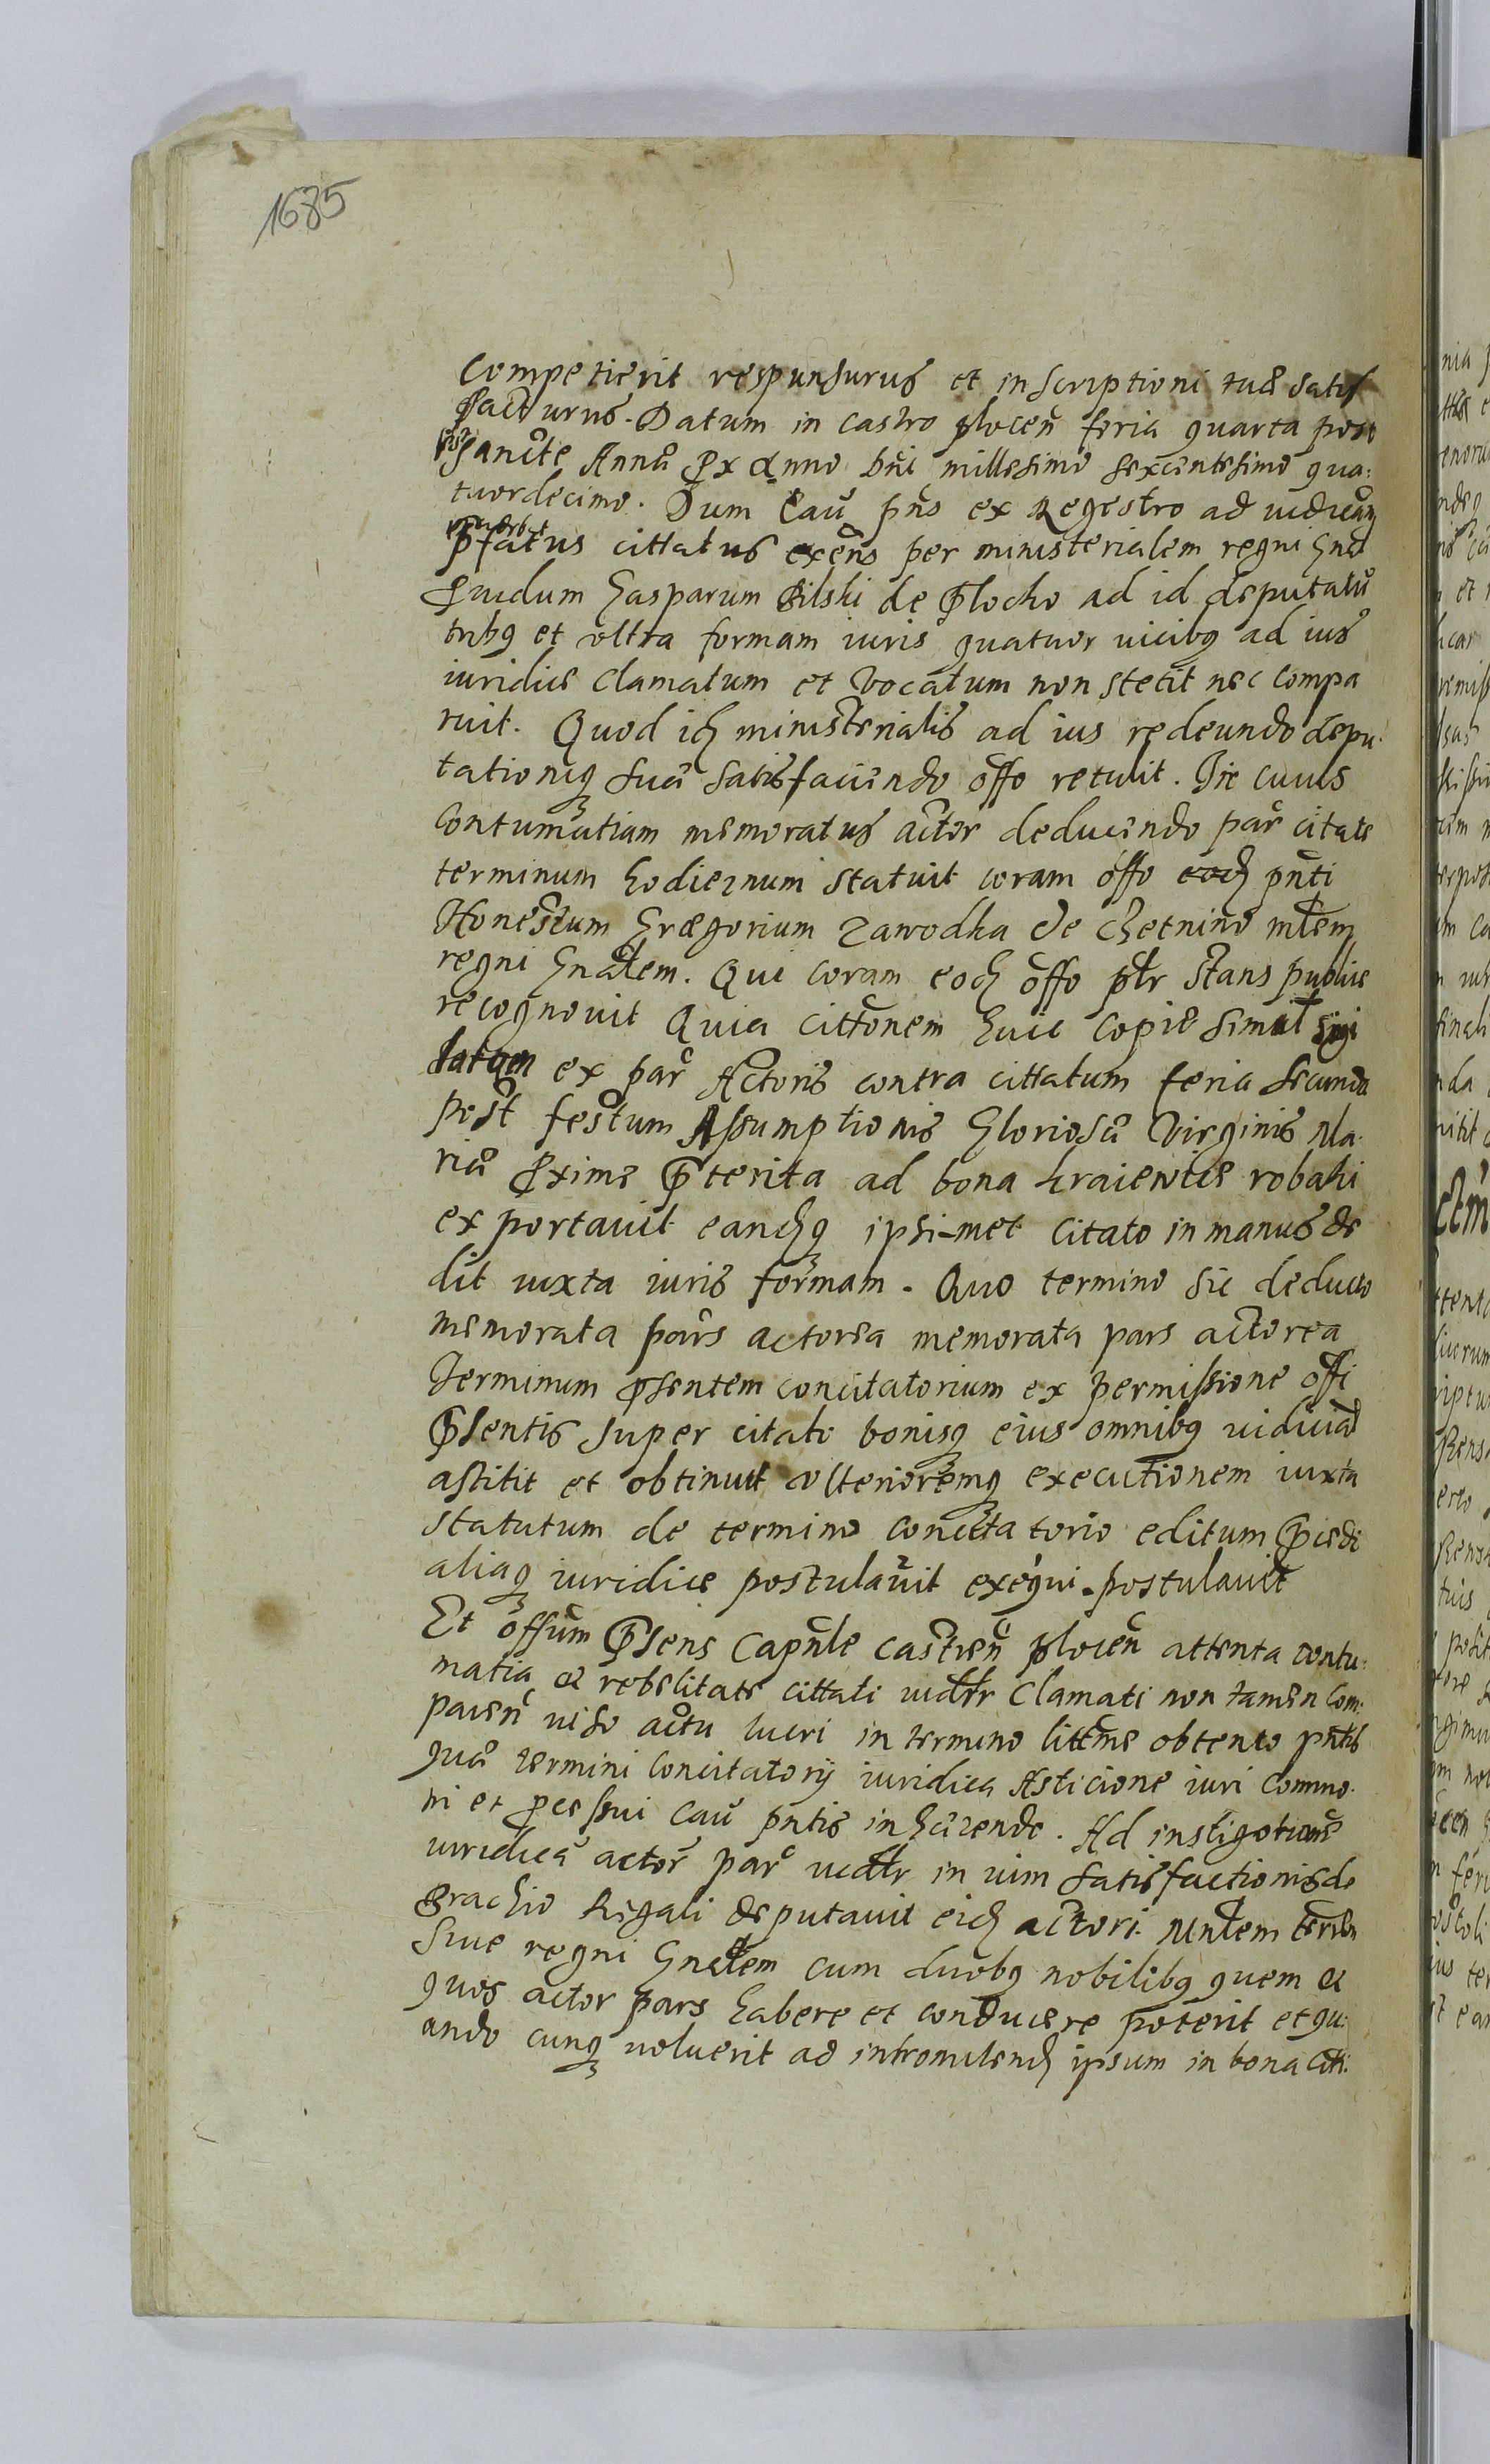 1685
Competierit responsurus et inscriptioni tuæ satis
facturus. Datum in castro plocen̄ feria quarta post
Sanctæ Annæ px Anno Dn̄i millesimo sexcentesimo qua:
tuordecimo. Dum Cau pn̄s ex Regestro ad iudicam
p̄fatus cittatus exēns per ministerialem regni Gnał
prudum Casparum Bilski de Plocko ad id deputatū
tribq et vltra formam iuris quatuor vicibq ad ius
iuridice Clamatum et Vocatum non stetit nec Compa
ruit. Quod idꝫ ministerialis ad ius redeundo depu
tationiq suæ satisfaciendo offo retulit. In cuius
Contumatiam memoratus actor deducendo par citate
terminum hodiernum statuit coram offo pn̄ti
Honestum Grægorium Zawodka de Chetnino młem
regni Gnałem. Qui coram eodꝫ offo płr stans publice
recognovit Quia cittōnem huic Copie simul sigi
latam ex par Actoris contra cittatum feria secunda
post festum Assumptionis Gloriosæ Virginis Ma
riæ pxime p̄terita ad bona kraiewice robaki
exportavit eandꝫq ipsi-met Citato in manus de
dit iuxta iuris formam. Quo termino sic deducto
memorata pars actorea memorata pars actorea
Terminum p̄sentem concitatorium ex permissione offi
p̄sentis super citato bonisq eius omnibq
astitit et obtinuit vlterioremq executionem iuxta
statutum de termino concitatorio editum
aliaq iuridice postulavit exequi. postulavit
Et offum p̄sens Capn̄le castren̄ plocen̄ attenta contu:
matia et rebelitate cittati Clamati non tamen Com:
paren̄ viso actu lucri in termino obtento pn̄tis
quæ termini Concitatorij iuridica Asticione iuri Commu
ni et pcessui Cau pn̄tis inhærendo. Ad instigationem
iuridicæ actor par in vim satisfactionis de
Brachio Regali deputavit eidꝫ actori
sive regni Gnałem cum duobq nobilibq quem et
quos actor pars habere et conducere poterit et qu:
ando cunq voluerit ad intromitendꝫ ipsum in bona Citi: